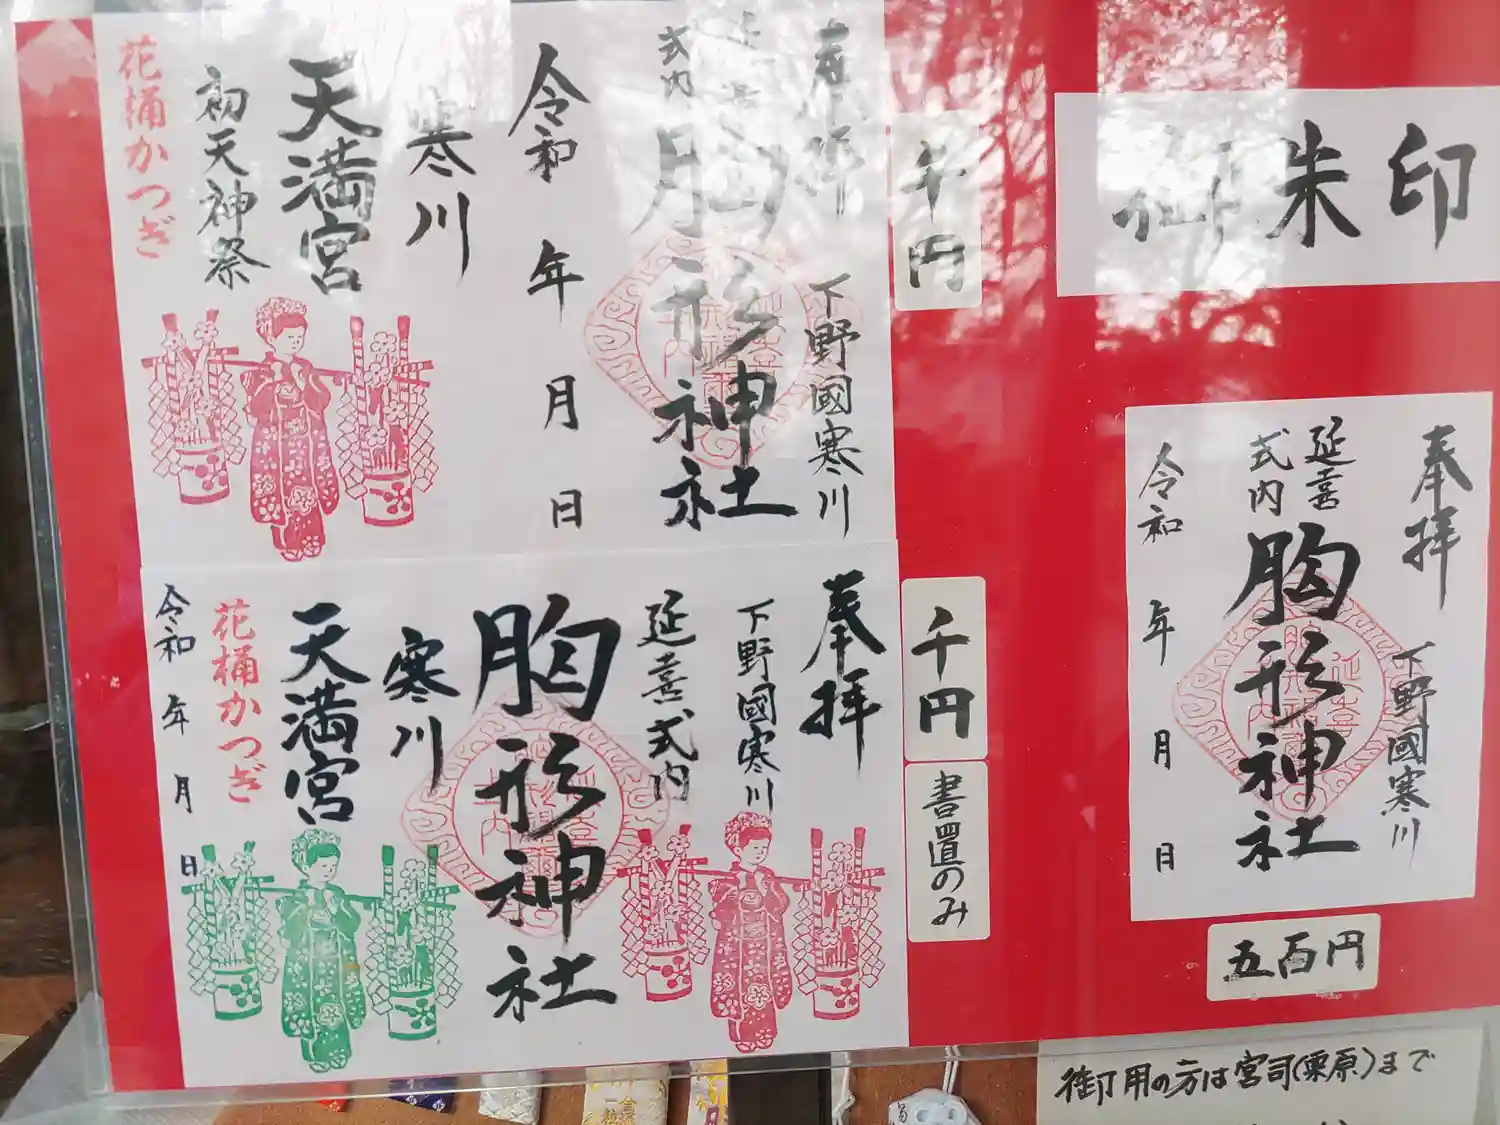 御朱印
奉拝
下野國寒川
延喜
式内
胸形神社
令和 年 月 日
五百円
御用の方は宮司(栗原)まで
千円
奉拝
下野國寒川
延喜
式内
胸形神社
令和 年 月 日
寒川
天満宮
初天神祭
花桶かつぎ
千円
書置のみ
奉拝
下野國寒川
延喜式内
胸形神社
寒川
天満宮
花桶かつぎ
令和 年 月 日